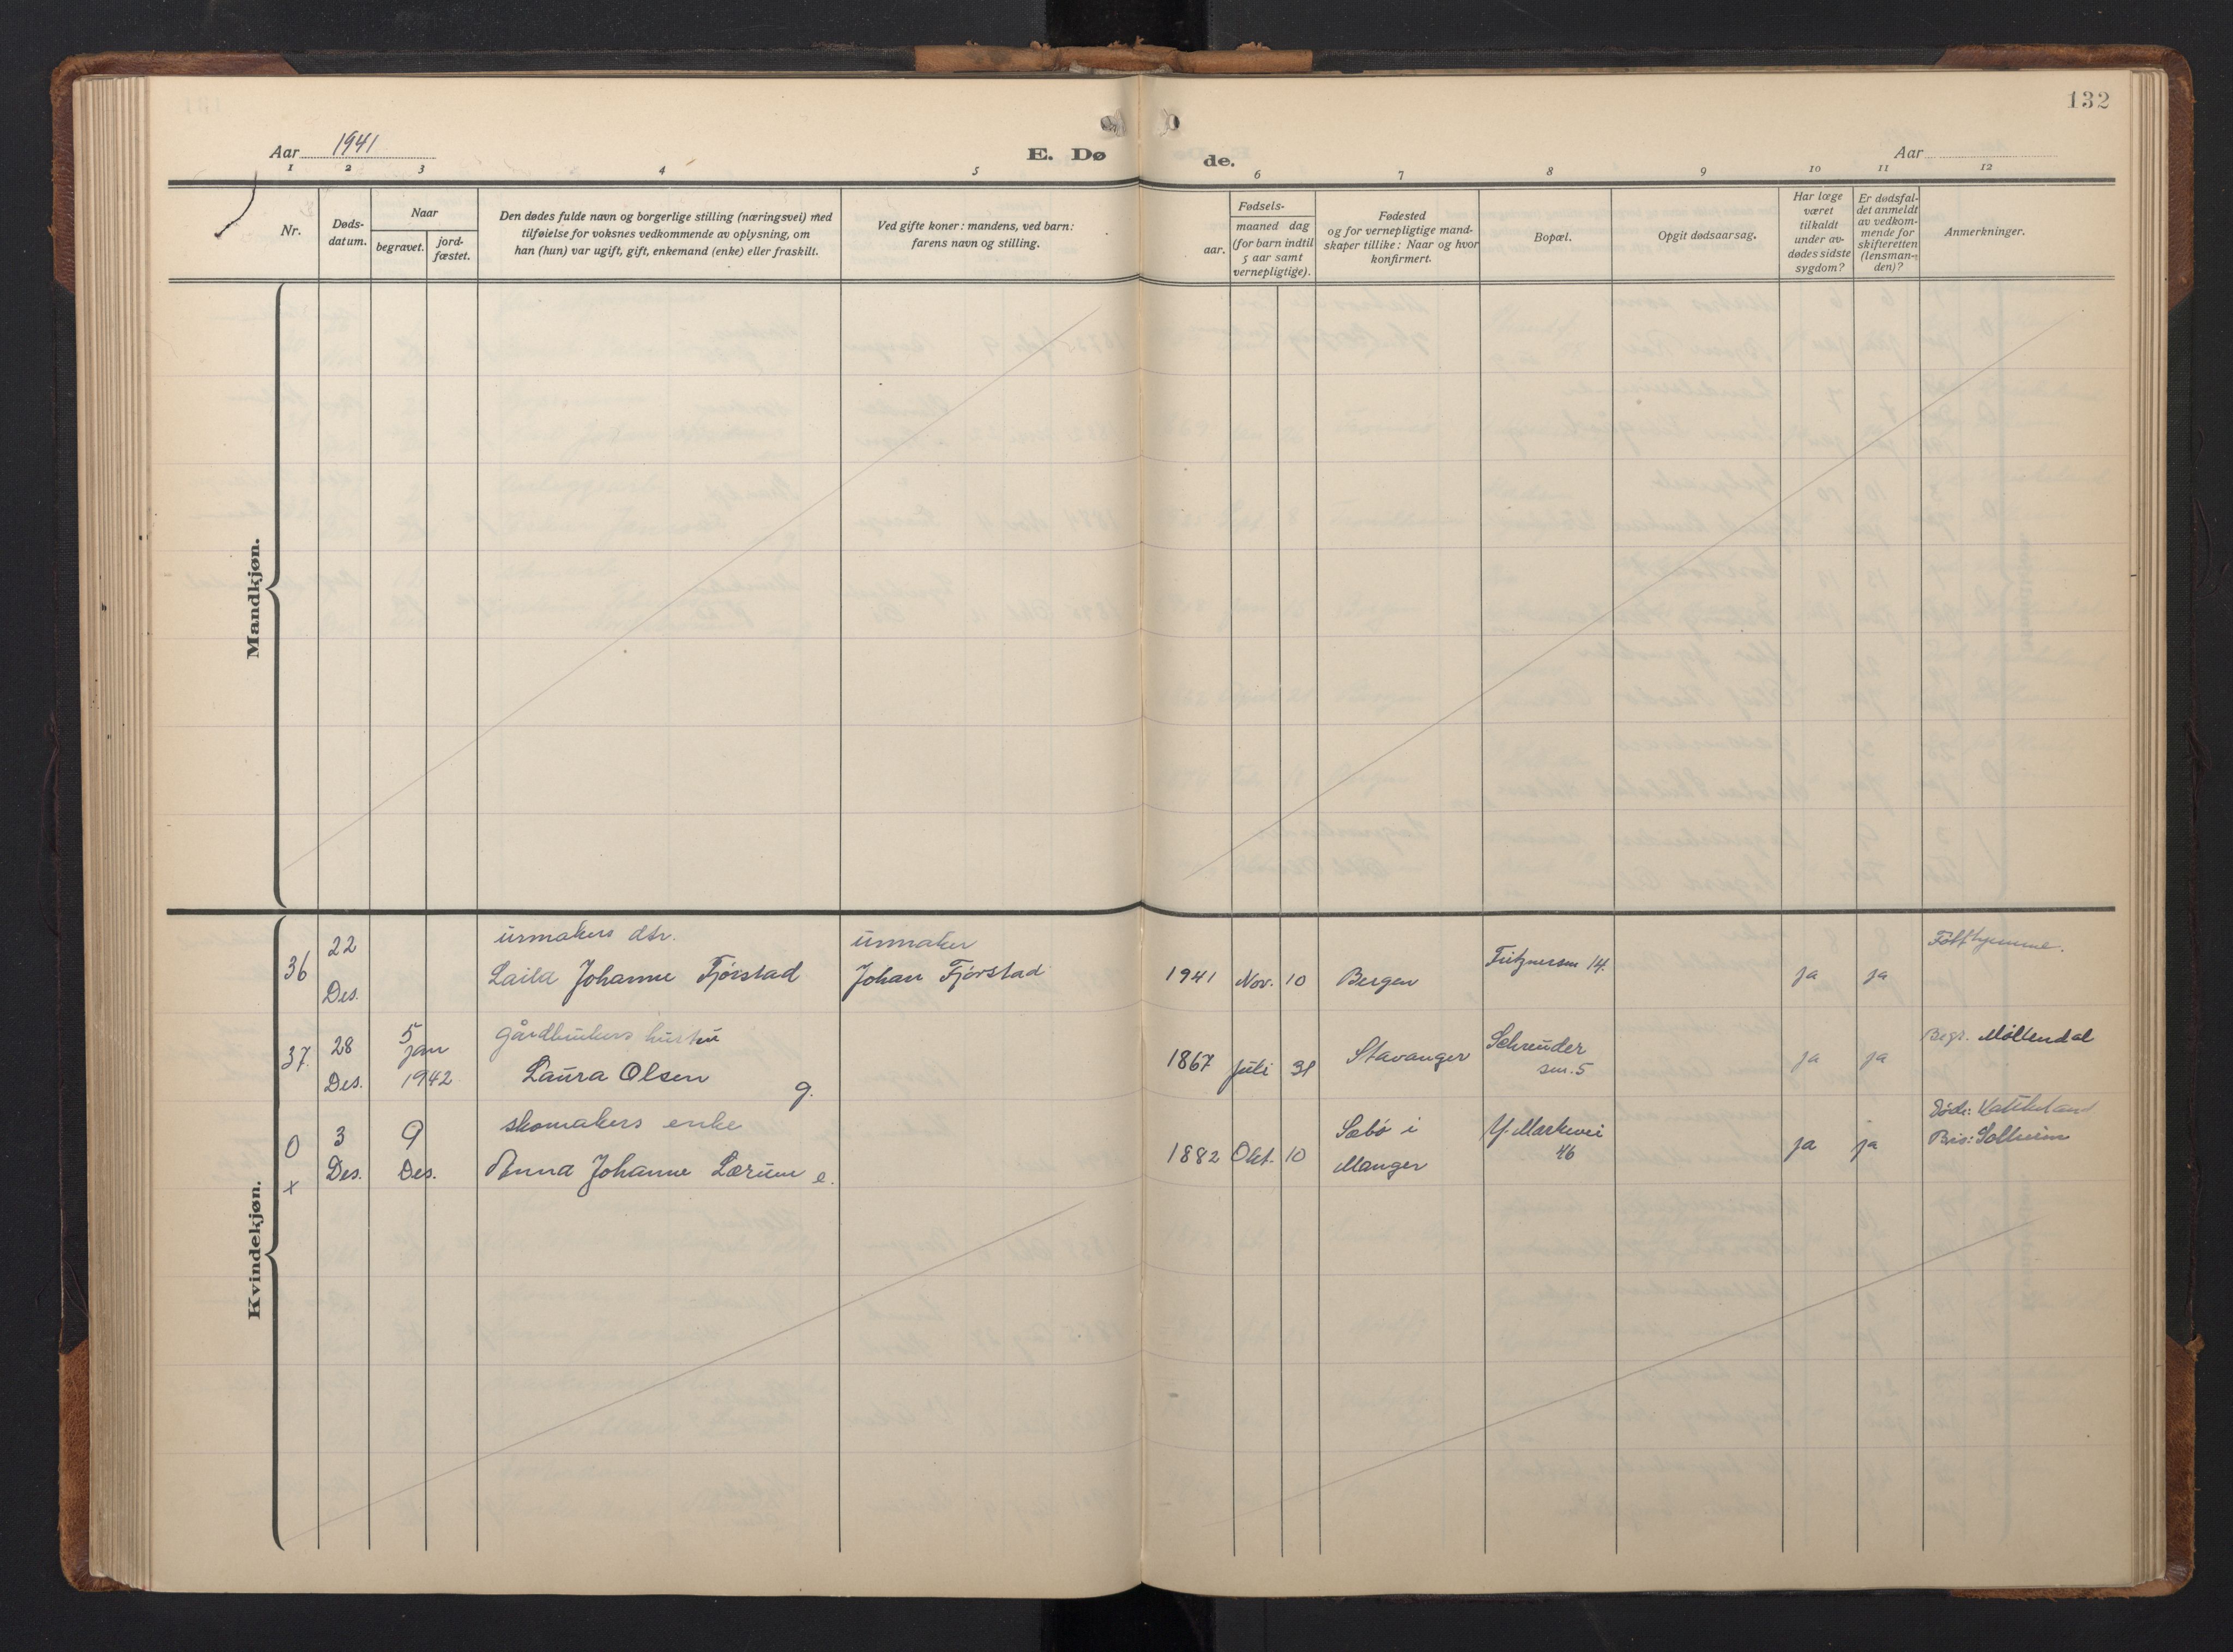 132
Aar 1941
E. Dø
de.
Aar
1 2 3 4 5 6 7 8 9 10 11 12
Nr.
Døds-
datum.
Naar
begravet.
jord-
fæstet.
Den dødes fulde navn og borgerlige stilling (næringsvei) med
tilføielse for voksnes vedkommende av oplysning, om
han (hun) var ugift, gift, enkemand (enke) eller fraskilt.
Ved gifte koner: mandens, ved barn:
farens navn og stilling.
Fødsels-
aar.
maaned dag
(for barn indtil
5 aar samt
vernepligtige).
Fødested
og for vernepligtige mand-
skaper tillike: Naar og hvor
konfirmert.
Bopæl.
Opgit dødsaarsag.
Har læge
været
tilkaldt
under av-
dødes sidste
sygdom?
Er dødsfal-
det anmeldt
av vedkom-
mende for
skifteretten
(lensman-
den)?
Anmerkninger.
Mandkjøn.
Kvindekjøn.
36
22
Des.
urmakers dtr.
Laila Johanne Fjørstad
urmaker
Johan Fjørstad
1941 Nov. 10 Bergen
14.
ja ja
37.
28
Des.
5
jan
1942
gårdbrukers hustru
Laura Olsen g.
1867 Juli 31 Stavanger
Schreuder
sm. 5
ja ja
Begr. Møllendal
0
x
3
Des.
9
Des.
skomakers enke
Anna Johanne Lærum e.
1882 Okt. 10
Sæbø i
Manger
Y. Markevei
46
ja ja
Bis: Solheim